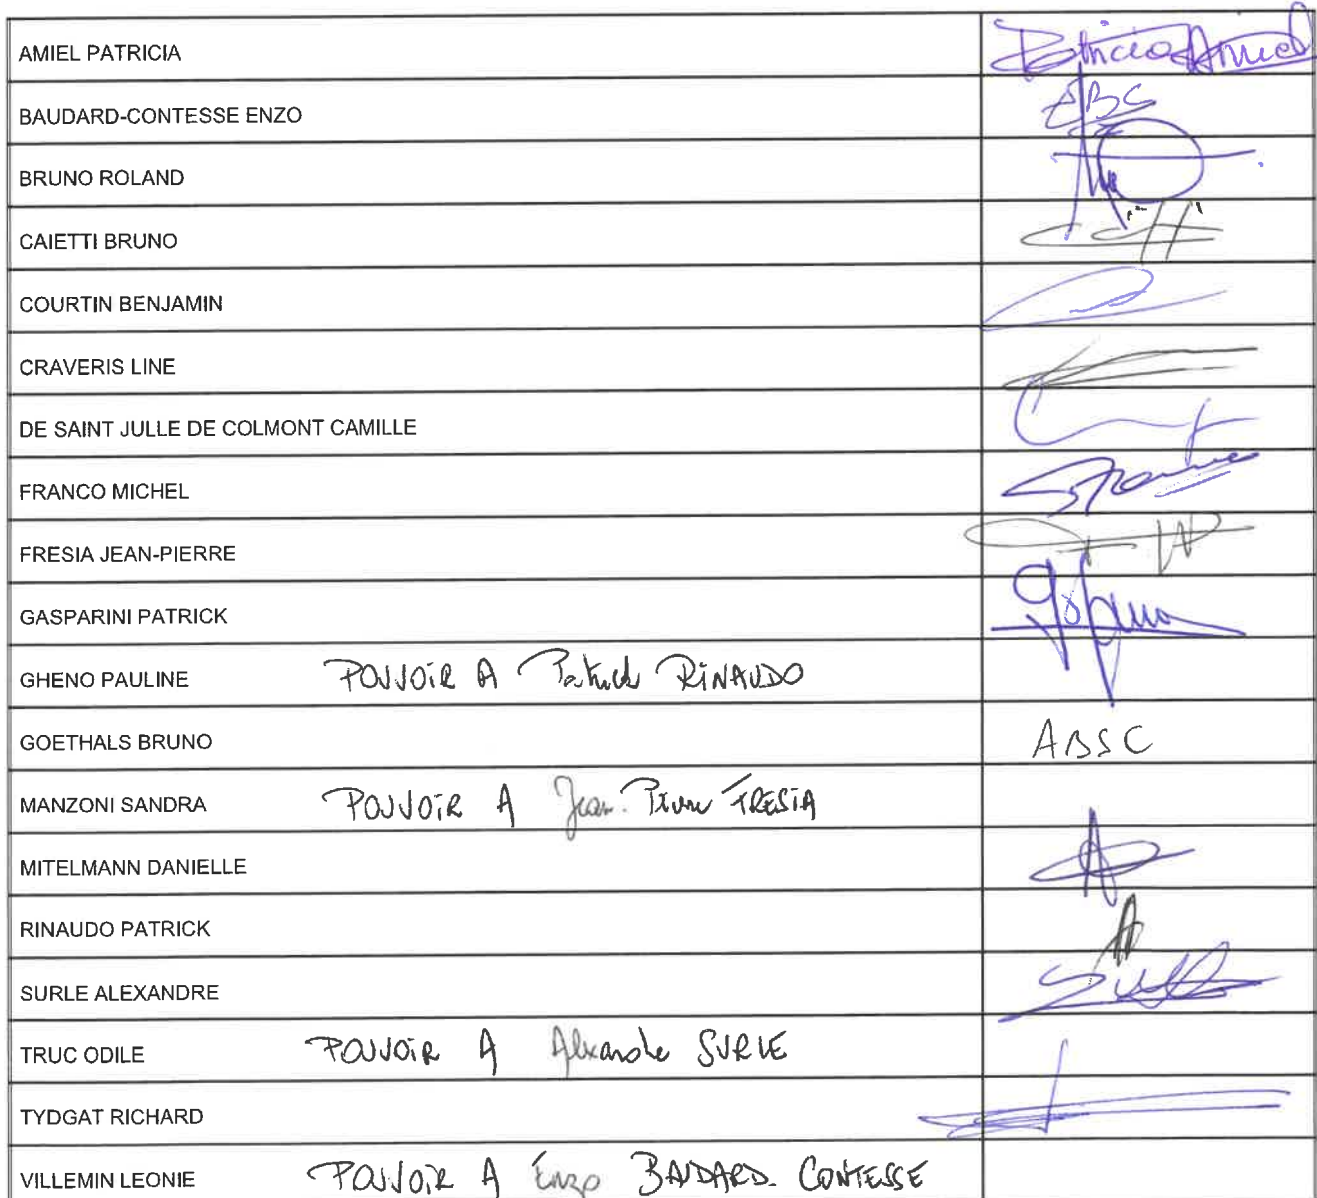 AMIEL PATRICIA Patricia Amiel
BAUDARD-CONTESSE ENZO EBC
BRUNO ROLAND
CAIETTI BRUNO
COURTIN BENJAMIN
CRAVERIS LINE
DE SAINT JULLE DE COLMONT CAMILLE
FRANCO MICHEL
FRESIA JEAN-PIERRE
GASPARINI PATRICK
GHENO PAULINE POUVOIR A Patrick RINAUDO
GOETHALS BRUNO ABSC
MANZONI SANDRA POUVOIR A Jean-Pierre FRESIA
MITELMANN DANIELLE
RINAUDO PATRICK
SURLE ALEXANDRE
TRUC ODILE POUVOIR A Alexandre SURLE
TYDGAT RICHARD
VILLEMIN LEONIE POUVOIR A Enzo BAUDARD-CONTESSE